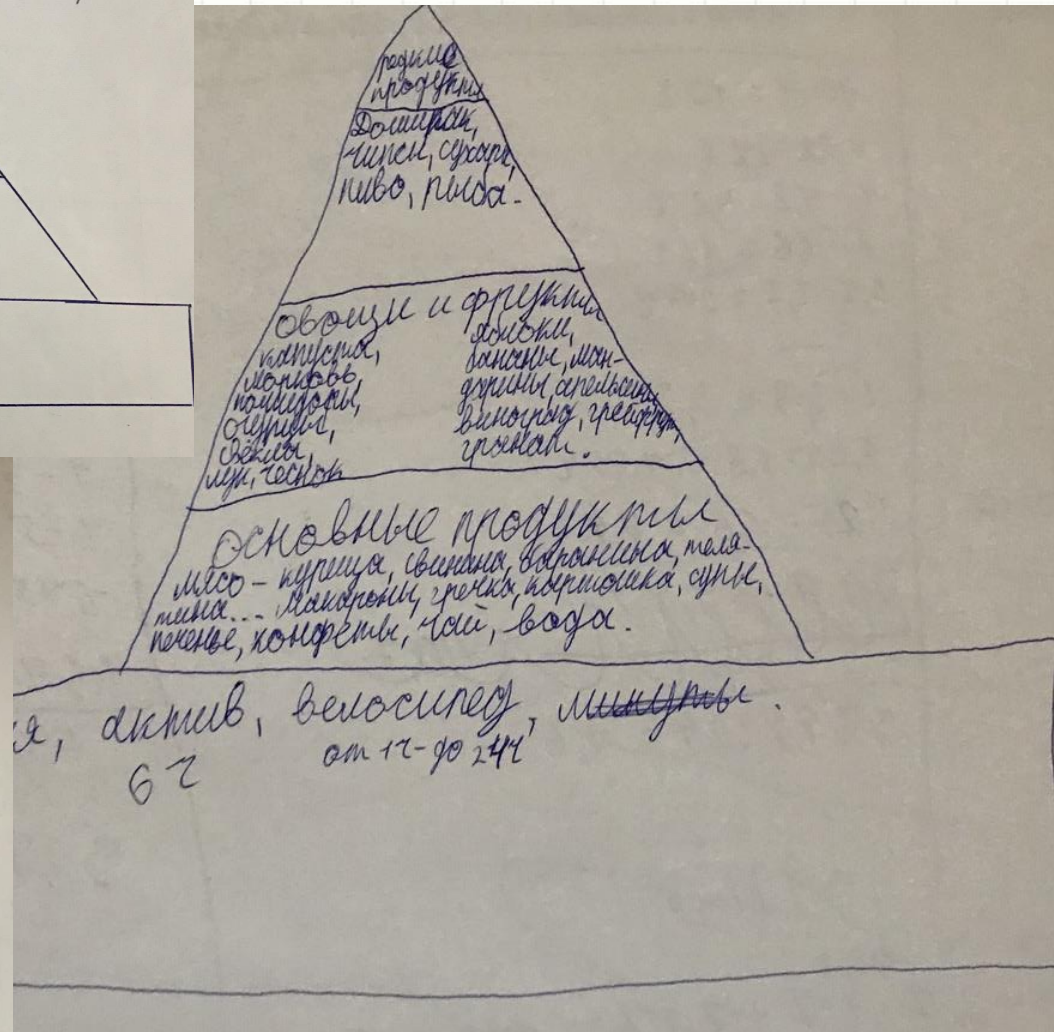 редкие
продукты
Доширак,
чипсы, сухари,
пиво, рыба.
овощи и фрукты
капуста,
морковь,
помидоры,
огурцы,
свёклы,
лук, чеснок
яблоки,
бананы, ман-
дарины, апельсины,
виноград, грейпфрут,
гранат.
основные продукты
мясо - курица, свинина, баранина, теля-
тина... макароны, гречка, картошка, супы,
печенье, конфеты, чай, вода.
я, актив, велосипед, минуты.
6 ч
от 1ч-до 24ч